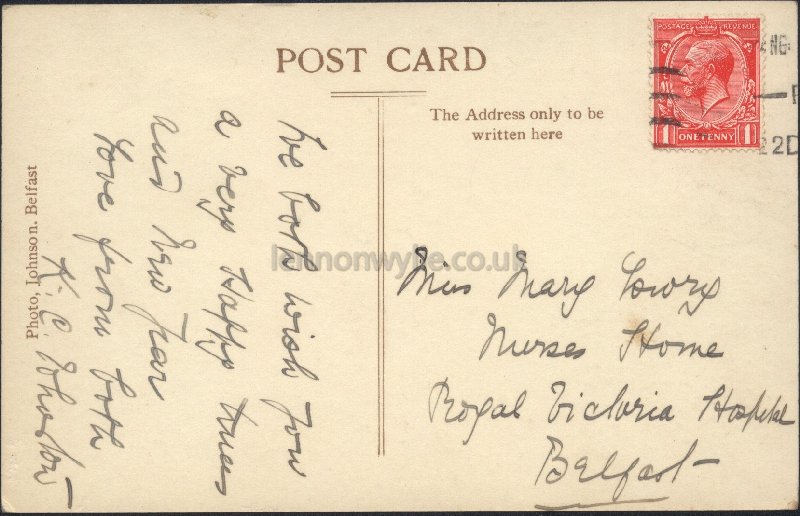 POST CARD
The Address only to be
written here
POSTAGE REVENUE
1 ONE PENNY 1
We both wish you
a very Happy Xmas
and New Year
Love from both
K. C. Johnston
Photo, Johnson. Belfast
Miss Mary Lowry
Nurses Home
Royal Victoria Hospital
Belfast
lennonwylie.co.uk